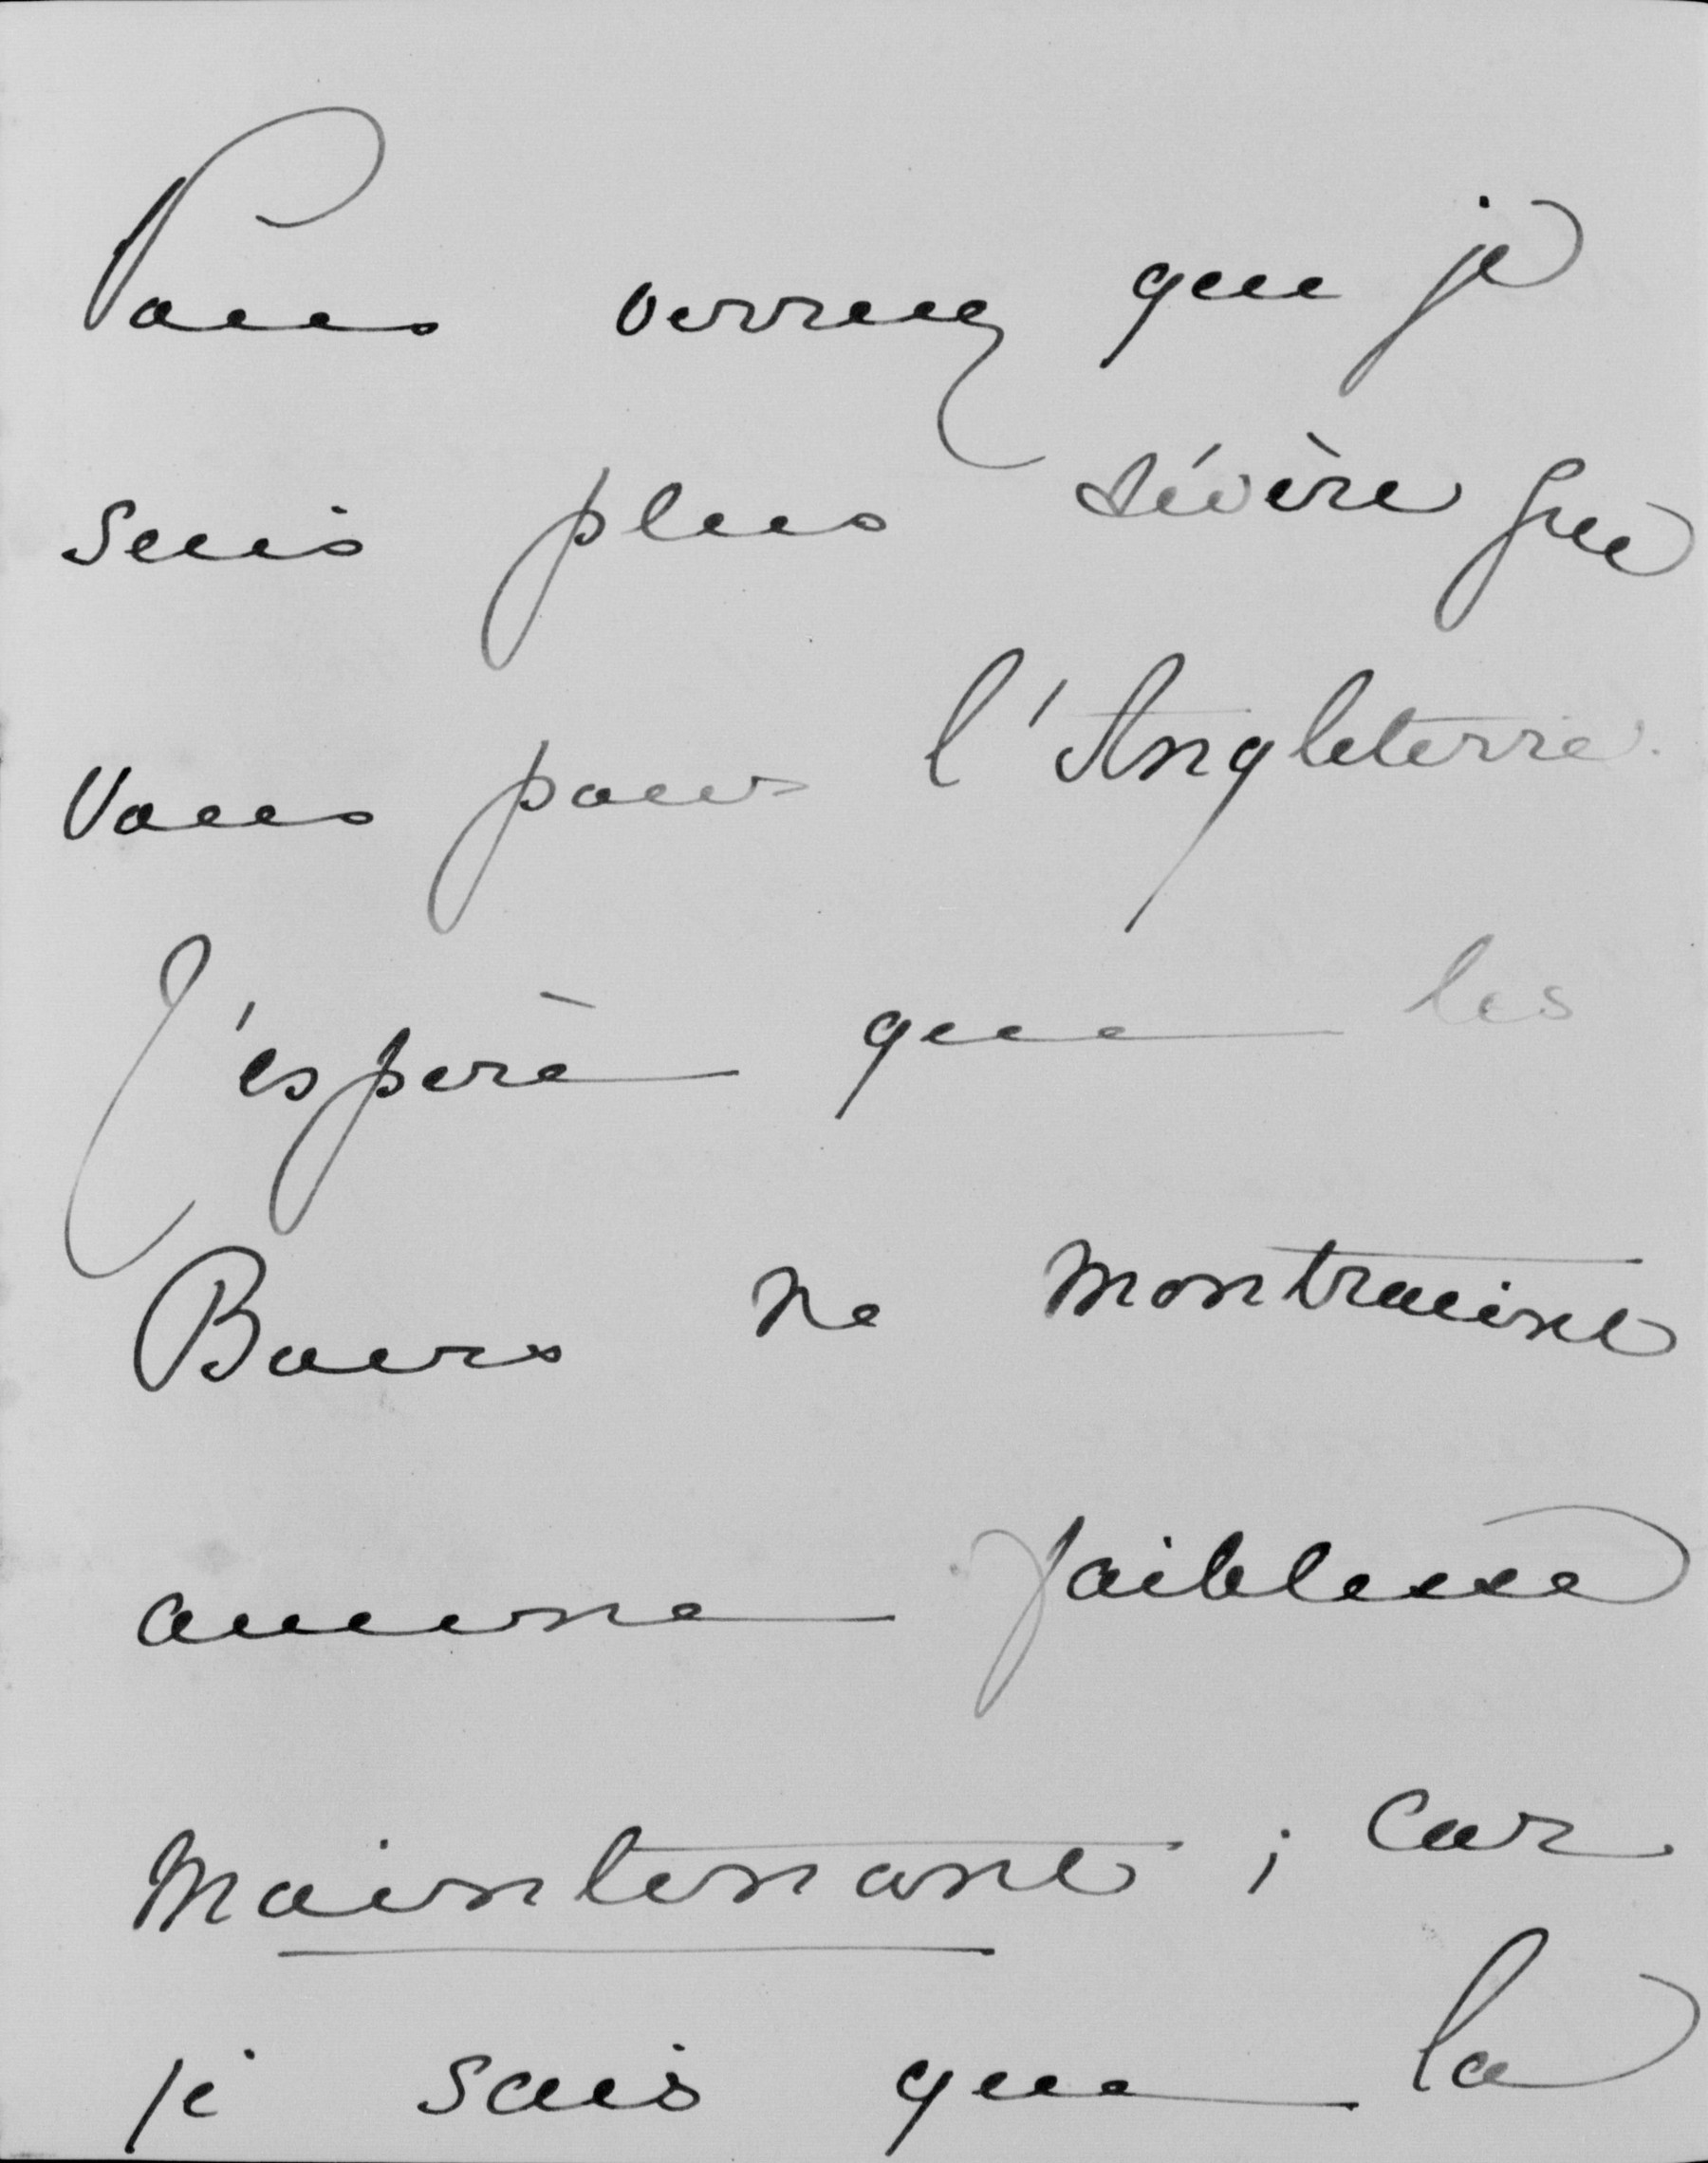 Vous verrez que je
suis plus sévère que
vous pour l'Angleterre.
J'espère que les
Boers ne montreront
aucune faiblesse
maintenant ; car
je sais que la